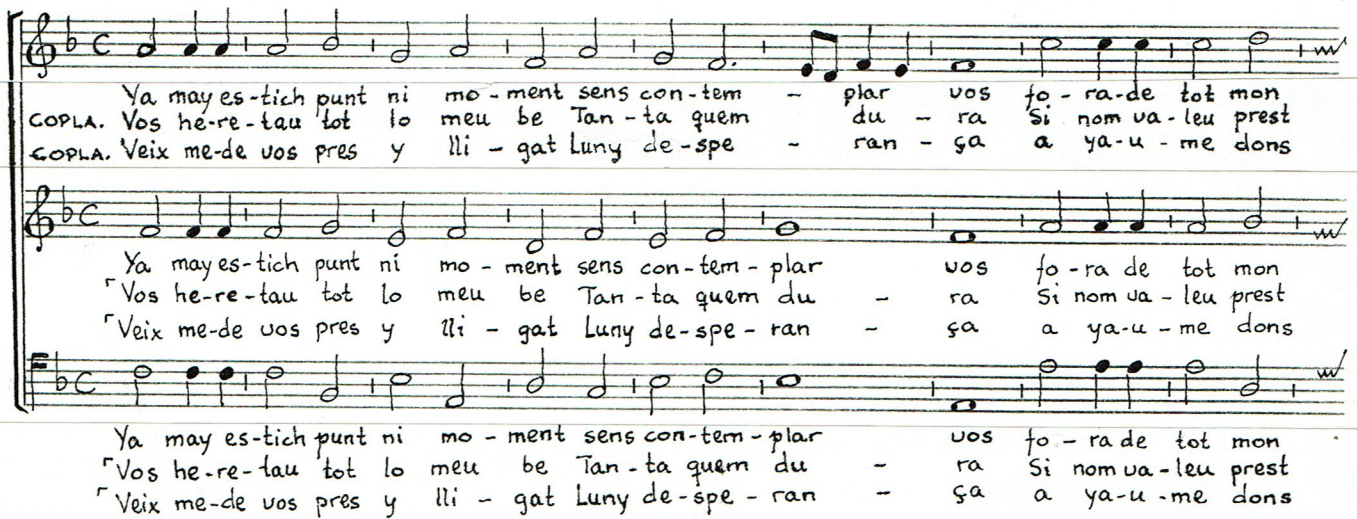 Ya may es-tich punt ni mo-ment sens con-tem - plar vos fo-ra-de tot mon
COPLA. Vos he-re-tau tot lo meu be Tan-ta quem du - ra Si nom va-leu prest
COPLA. Veix me-de vos pres y lli-gat Luny de-spe - ran-ça a ya-u-me dons
Ya may es-tich punt ni mo-ment sens con-tem-plar vos fo-ra de tot mon
Vos he-re-tau tot lo meu be Tan-ta quem du - ra Si nom va-leu prest
Veix me-de vos pres y lli-gat Luny de-spe-ran - ça a ya-u-me dons
Ya may es-tich punt ni mo-ment sens con-tem-plar vos fo-ra de tot mon
Vos he-re-tau tot lo meu be Tan-ta quem du - ra Si nom va-leu prest
Veix me-de vos pres y lli-gat Luny de-spe-ran - ça a ya-u-me dons